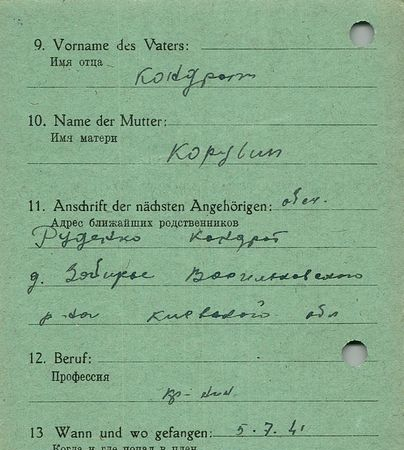 9. Vorname des Vaters:
Имя отца
Кондрат
10. Name der Mutter:
Имя матери
11. Anschrift der nächsten Angehörigen:
Адрес ближайших родственников
Руденко Кондрат
д.
р-на Киевской обл
12. Beruf:
Профессия
13 Wann und wo gefangen: 5.7.41
Когда и где попал в плен